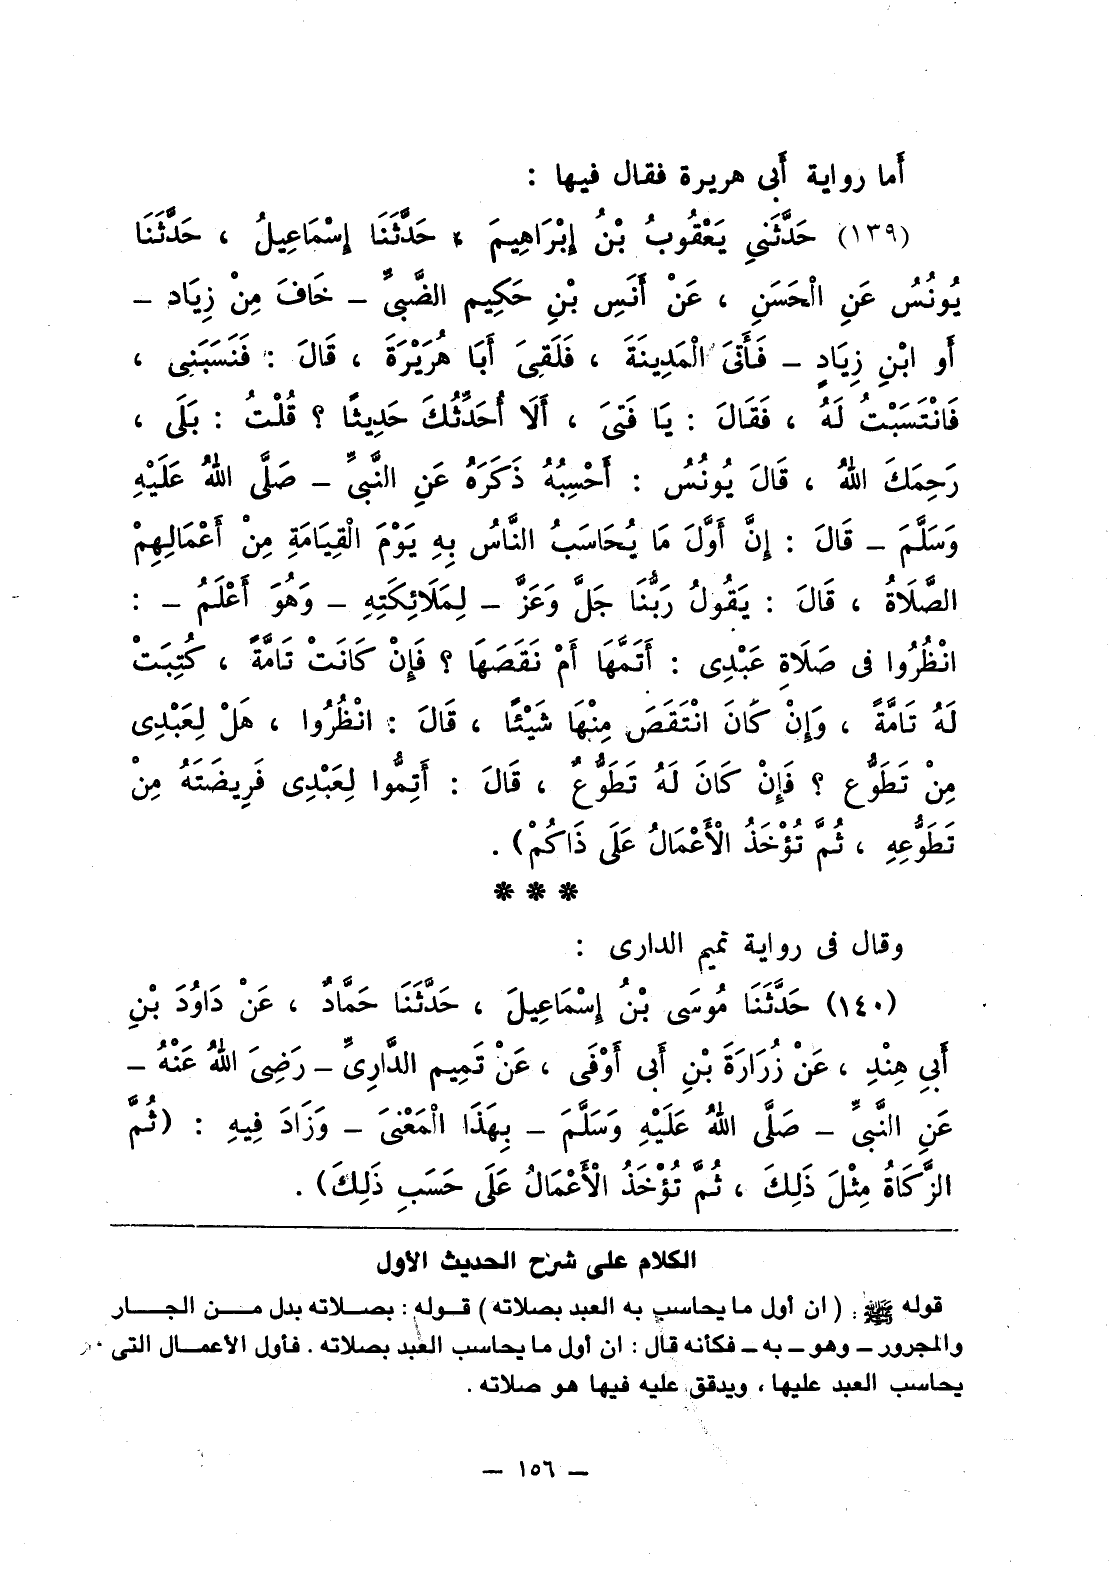 أما رواية أبى هريرة فقال فيها :
(١٣٩) حَدَّثَنِي يَعْقُوبُ بْنُ إِبْرَاهِيمَ ، حَدَّثَنَا إِسْمَاعِيلُ ، حَدَّثَنَا
يُونُسُ عَنِ الْحَسَنِ ، عَنْ أَنَسِ بْنِ حَكِيم الضَّبىِّ – خَافَ مِنْ زِيَاد –
أَو ابْنِ زِيَادٍ – فَأَتَى الْمَدِينَةَ ، فَلَقِىَ أَبَا هُرَيْرَةَ ، قَالَ : فَنَسَبَنِى ،
فَانْتَسَبْتُ لَهُ ، فَقَالَ : يَا فَتىَ ، أَلَا أُحَدِّثُكَ حَدِيثًا ؟ قُلْتُ : بَلَى ،
رَحِمَكَ اللهُ ، قَالَ يُونُسُ : أَحْسِبُهُ ذَكَرَهُ عَنِ النَّبىِّ – صَلَّى اللهُ عَلَيْهِ
وَسَلَّمَ – قَالَ : إِنَّ أَوَّلَ مَا يُحَاسَبُ النَّاسُ بِهِ يَوْمَ الْقِيَامَةِ مِنْ أَعْمَالِهِمْ
الصَّلَاةُ ، قَالَ : يَقُولُ رَبُّنَا جَلَّ وَعَزَّ – لِمَلَائِكَتِهِ – وَهُوَ أَعْلَمُ – :
انْظُرُوا فى صَلَاةِ عَبْدِى : أَتَمَّهَا أَمْ نَقَصَهَا ؟ فَإِنْ كَانَتْ تَامَّةً ، كُتِبَتْ
لَهُ تَامَّةً ، وَإِنْ كَانَ انْتَقَصَ مِنْهَا شَيْئًا ، قَالَ : انْظُرُوا ، هَلْ لِعَبْدِى
مِنْ تَطَوُّعٍ ؟ فَإِنْ كَانَ لَهُ تَطَوُّعٌ ، قَالَ : أَتِمُّوا لِعَبْدِى فَرِيضَتَهُ مِنْ
تَطَوُّعِهِ ، ثُمَّ تُؤْخَذُ الْأَعْمَالُ عَلَى ذَاكُمْ) .
* * *
وقال فى رواية تميم الدارى :
(١٤٠) حَدَّثَنَا مُوسَى بْنُ إِسْمَاعِيلَ ، حَدَّثَنَا حَمَّادٌ ، عَنْ دَاوُدَ بْنِ
أَبِي هِنْدِ ، عَنْ زُرَارَةَ بْنِ أَبى أَوْفَى ، عَنْ تَمِيم الدَّارِىِّ – رَضِىَ اللهُ عَنْهُ –
عَنِ النَّبىِّ – صَلَّى اللهُ عَلَيْهِ وَسَلَّمَ – بِهَذَا الْمَعْنىَ – وَزَادَ فِيهِ : (ثُمَّ
الزَّكَاةُ مِثْلَ ذَلِكَ ، ثُمَّ تُؤْخَذُ الْأَعْمَالُ عَلَى حَسَبِ ذَلِكَ) .
الكلام على شرح الحديث الأول
قوله ﷺ : ( ان أول ما يحاسب به العبد بصلاته ) قوله : بصلاته بدل من الجار
والمجرور – وهو – به – فكأنه قال : ان أول ما يحاسب العبد بصلاته . فأول الأعمال التى
يحاسب العبد عليها ، ويدقق عليه فيها هو صلاته .
– ١٥٦ –